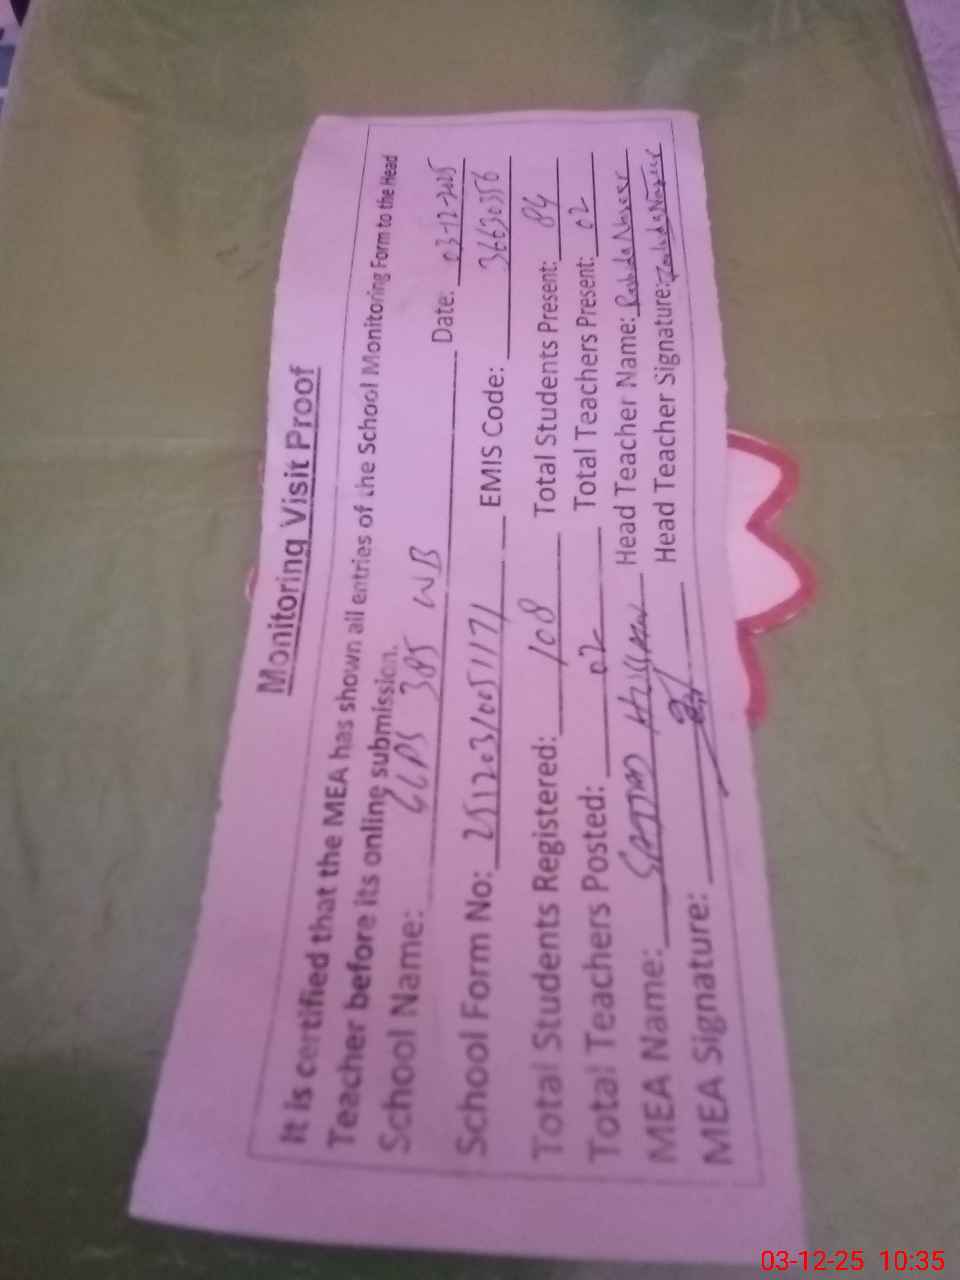 Monitoring Visit Proof
It is certified that the MEA has shown all entries of the School Monitoring Form to the Head
Teacher before its online submission.
School Name: GGPS 385 WB Date: 03-12-2025
School Form No: 251203/0051171 EMIS Code: 36630356
Total Students Registered: 108 Total Students Present: 84
Total Teachers Posted: 02 Total Teachers Present: 02
MEA Name: SAJJAD HUSSAIN Head Teacher Name:
MEA Signature: Head Teacher Signature:
03-12-25 10:35